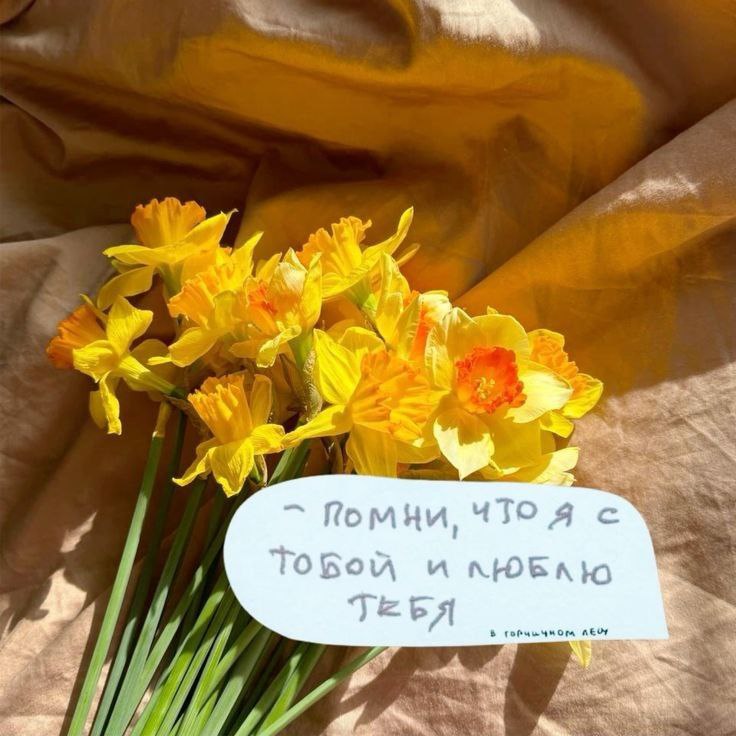 - ПОМНИ, ЧТО Я С
ТОБОЙ И ЛЮБЛЮ
ТЕБЯ
В ГОРЧИЧНОМ ЛЕСУ